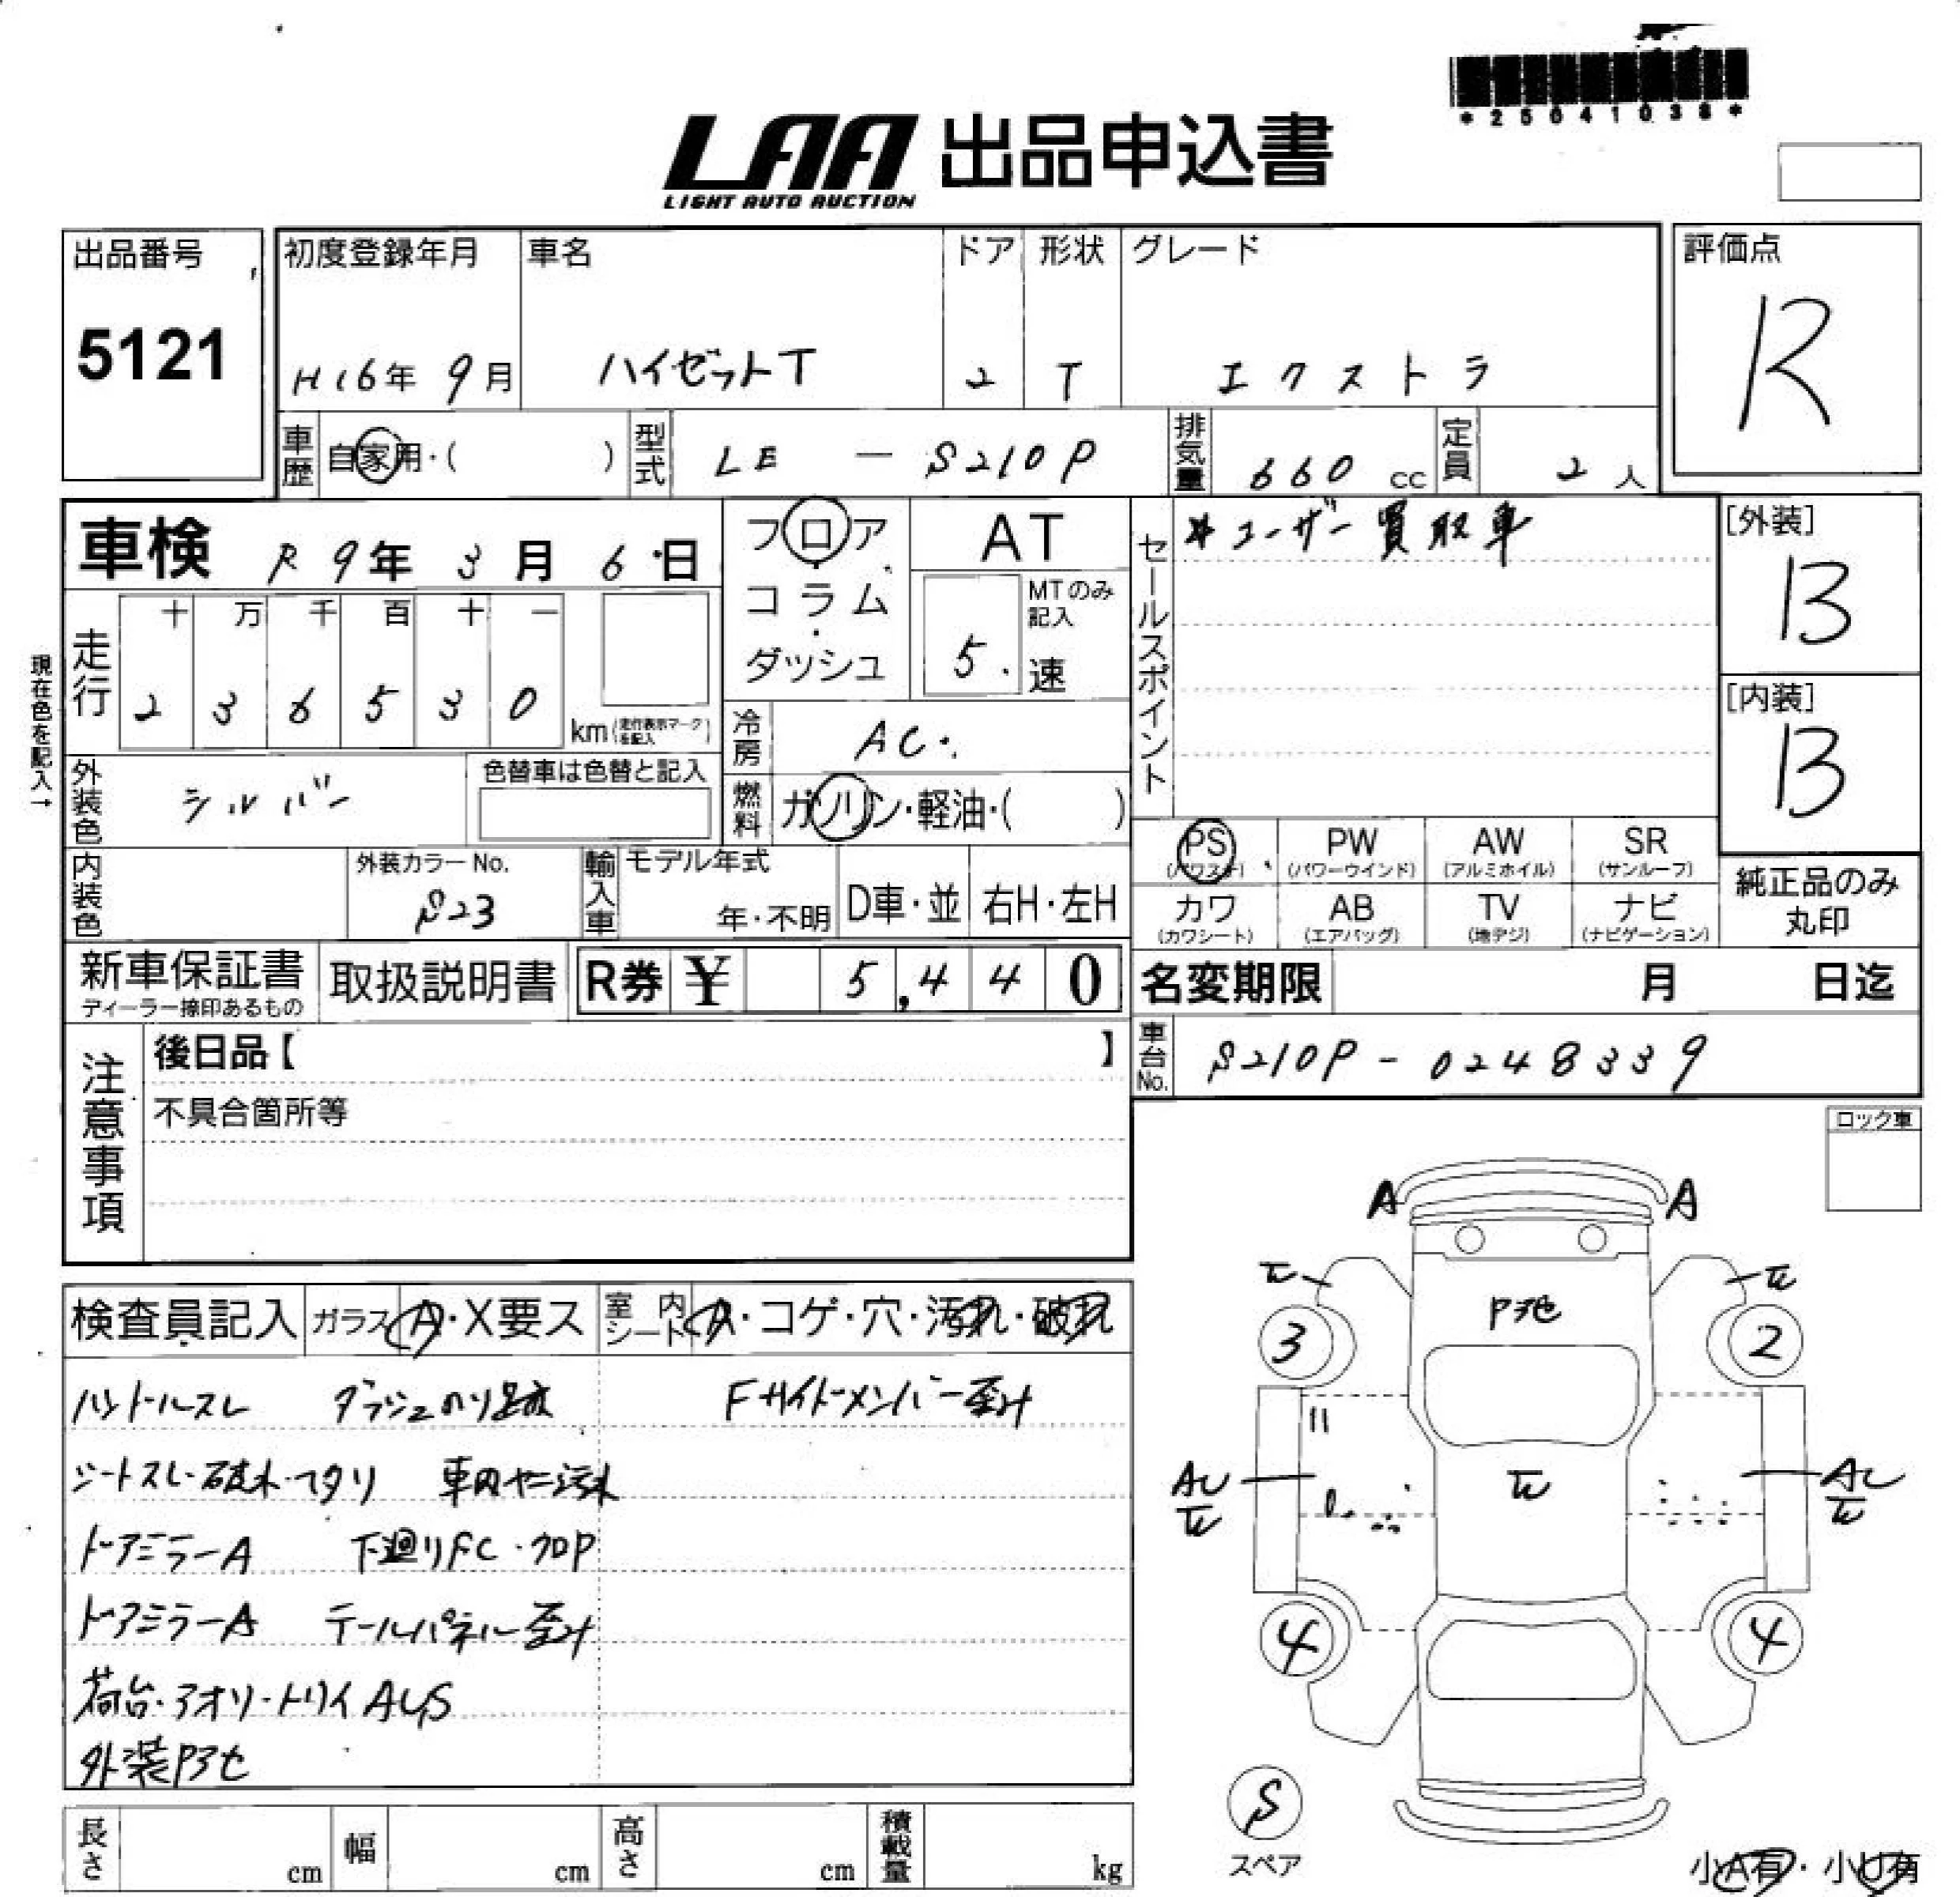 *25041038*
LAA 出品申込書
LIGHT AUTO AUCTION
出品番号
5121
初度登録年月 車名 ドア 形状 グレード
H16年 9月 ハイゼットT 2 T エクストラ
評価点
R
車歴 自家用・( ) 型式 LE - S210P 排気量 660 cc 定員 2 人
車検 R 9年 3月 6日
フロア・コラム・ダッシュ
AT
MTのみ記入
5. 速
セールスポイント
※ユーザー買取車
[外装]
B
[内装]
B
現在色を記入→
走行 十 万 千 百 十 一
2 3 6 5 3 0 km (走行表示マークを記入)
冷房 AC.
外装色 シルバー 色替車は色替と記入
燃料 ガソリン・軽油・( )
内装色 外装カラーNo. S23
輸入車 モデル年式 年・不明 D車・並 右H・左H
PS (パワステ) PW (パワーウインド) AW (アルミホイル) SR (サンルーフ)
カワ (カワシート) AB (エアバッグ) TV (地デジ) ナビ (ナビゲーション)
純正品のみ丸印
新車保証書 ディーラー捺印あるもの 取扱説明書 R券 ¥ 5,440
名変期限 月 日迄
車台No. S210P - 0248339
注意事項
後日品【 】
不具合箇所等
ロック車
検査員記入 ガラス A・X要ス 室内シート A・コゲ・穴・汚れ・破れ
ハンドルスレ ダッシュのり跡 Fサイドメンバー歪み
シートスレ・破れ・ヘタリ 車内ヤニ汚れ
ドアミラーA 下廻りFC・クロP
ドアミラーA テールパネル歪み
荷台・アオリ・トリイAUS
外装Pアセ
A A
Pアセ
3 2
AU AU
4 4
S
スペア
小A有・小U有
長さ cm 幅 cm 高さ cm 積載量 kg